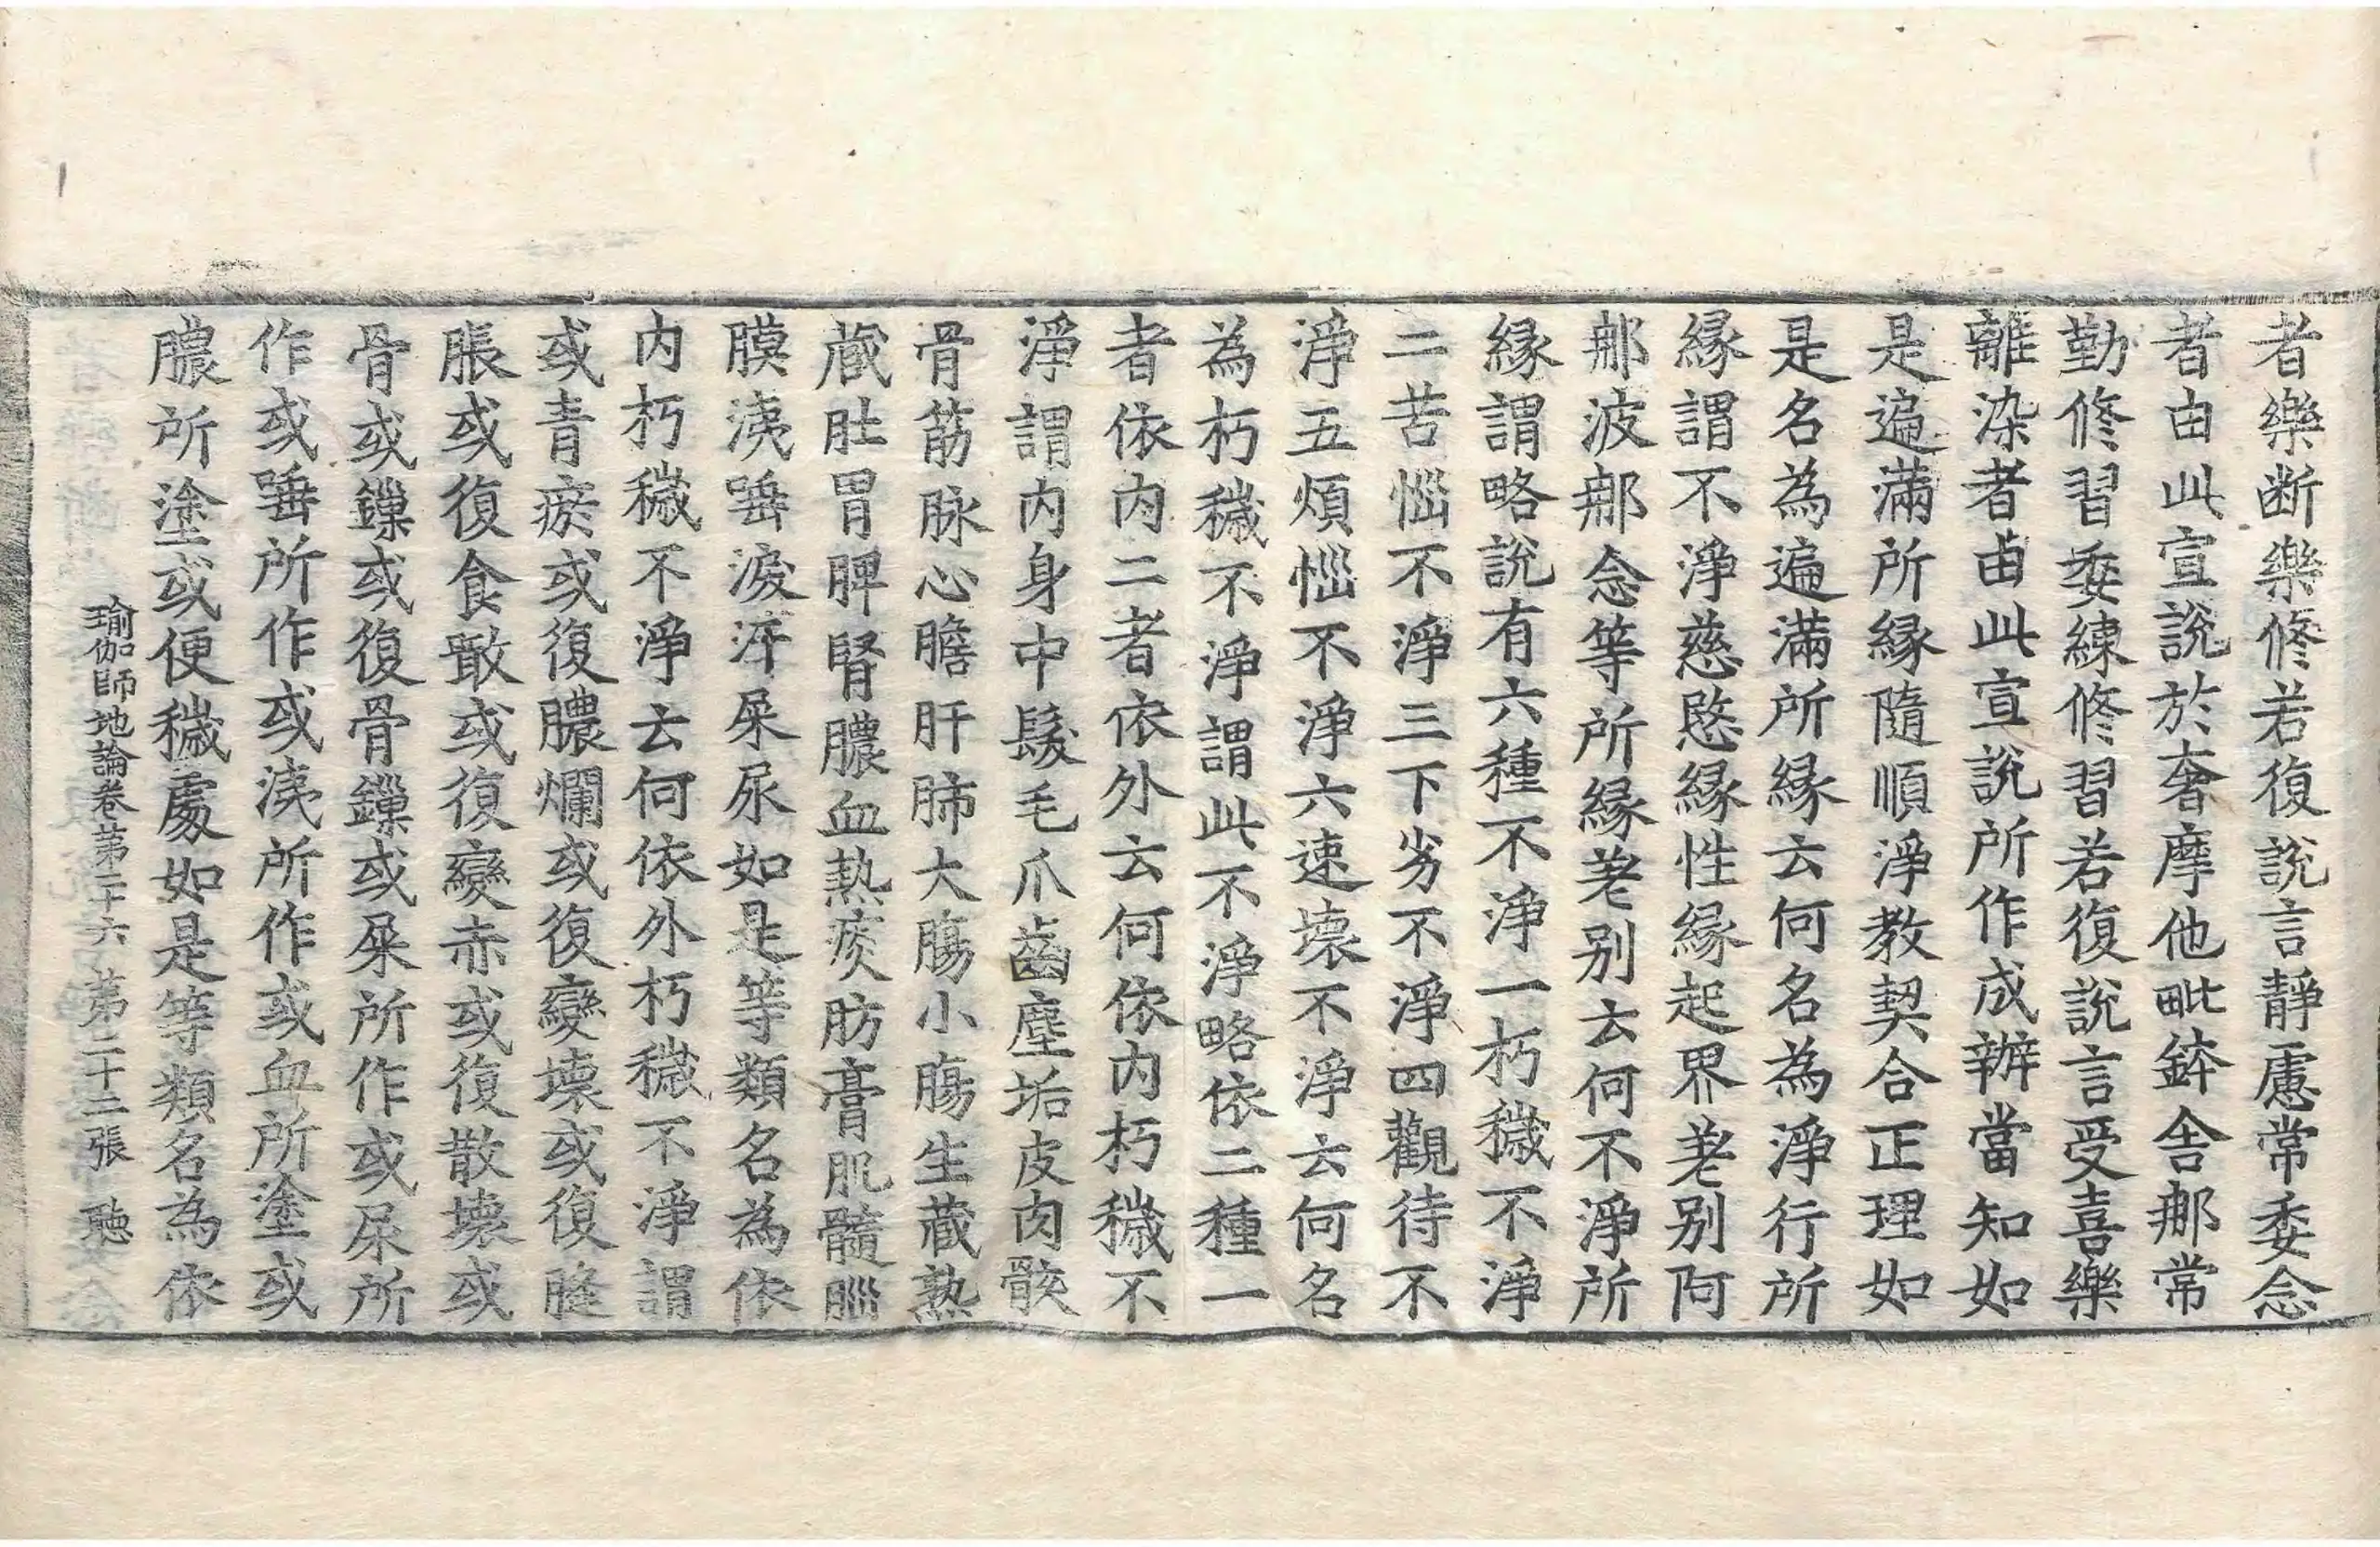 者樂断樂修若復說言靜慮常委念
者由此宣說於奢摩他毗鉢舍那常
勤修習委練修習若復說言受喜樂
離染者由此宣說所作成辦當知如
是遍滿所緣隨順淨教契合正理如
是名為遍滿所緣云何名為淨行所
緣謂不淨慈愍緣性緣起界差別阿
那波那念等所緣差別云何不淨所
緣謂略說有六種不淨一朽穢不淨
二苦惱不淨三下劣不淨四觀待不
淨五煩惱不淨六速壞不淨云何名
為朽穢不淨謂此不淨略依二種一
者依內二者依外云何依內朽穢不
淨謂內身中髮毛爪齒塵垢皮肉骸
骨筋脉心膽肝肺大腸小腸生藏熟
藏肚胃脾腎膿血熱痰肪膏肌髓腦
膜洟唾淚汗屎尿如是等類名為依
內朽穢不淨云何依外朽穢不淨謂
或青瘀或復膿爛或復變壞或復膖
脹或復食噉或復變赤或復散壞或
骨或鏁或復骨鏁或屎所作或尿所
作或唾所作或洟所作或血所塗或
膿所塗或便穢處如是等類名為依
瑜伽師地論卷第二十六 第二十二張 聽